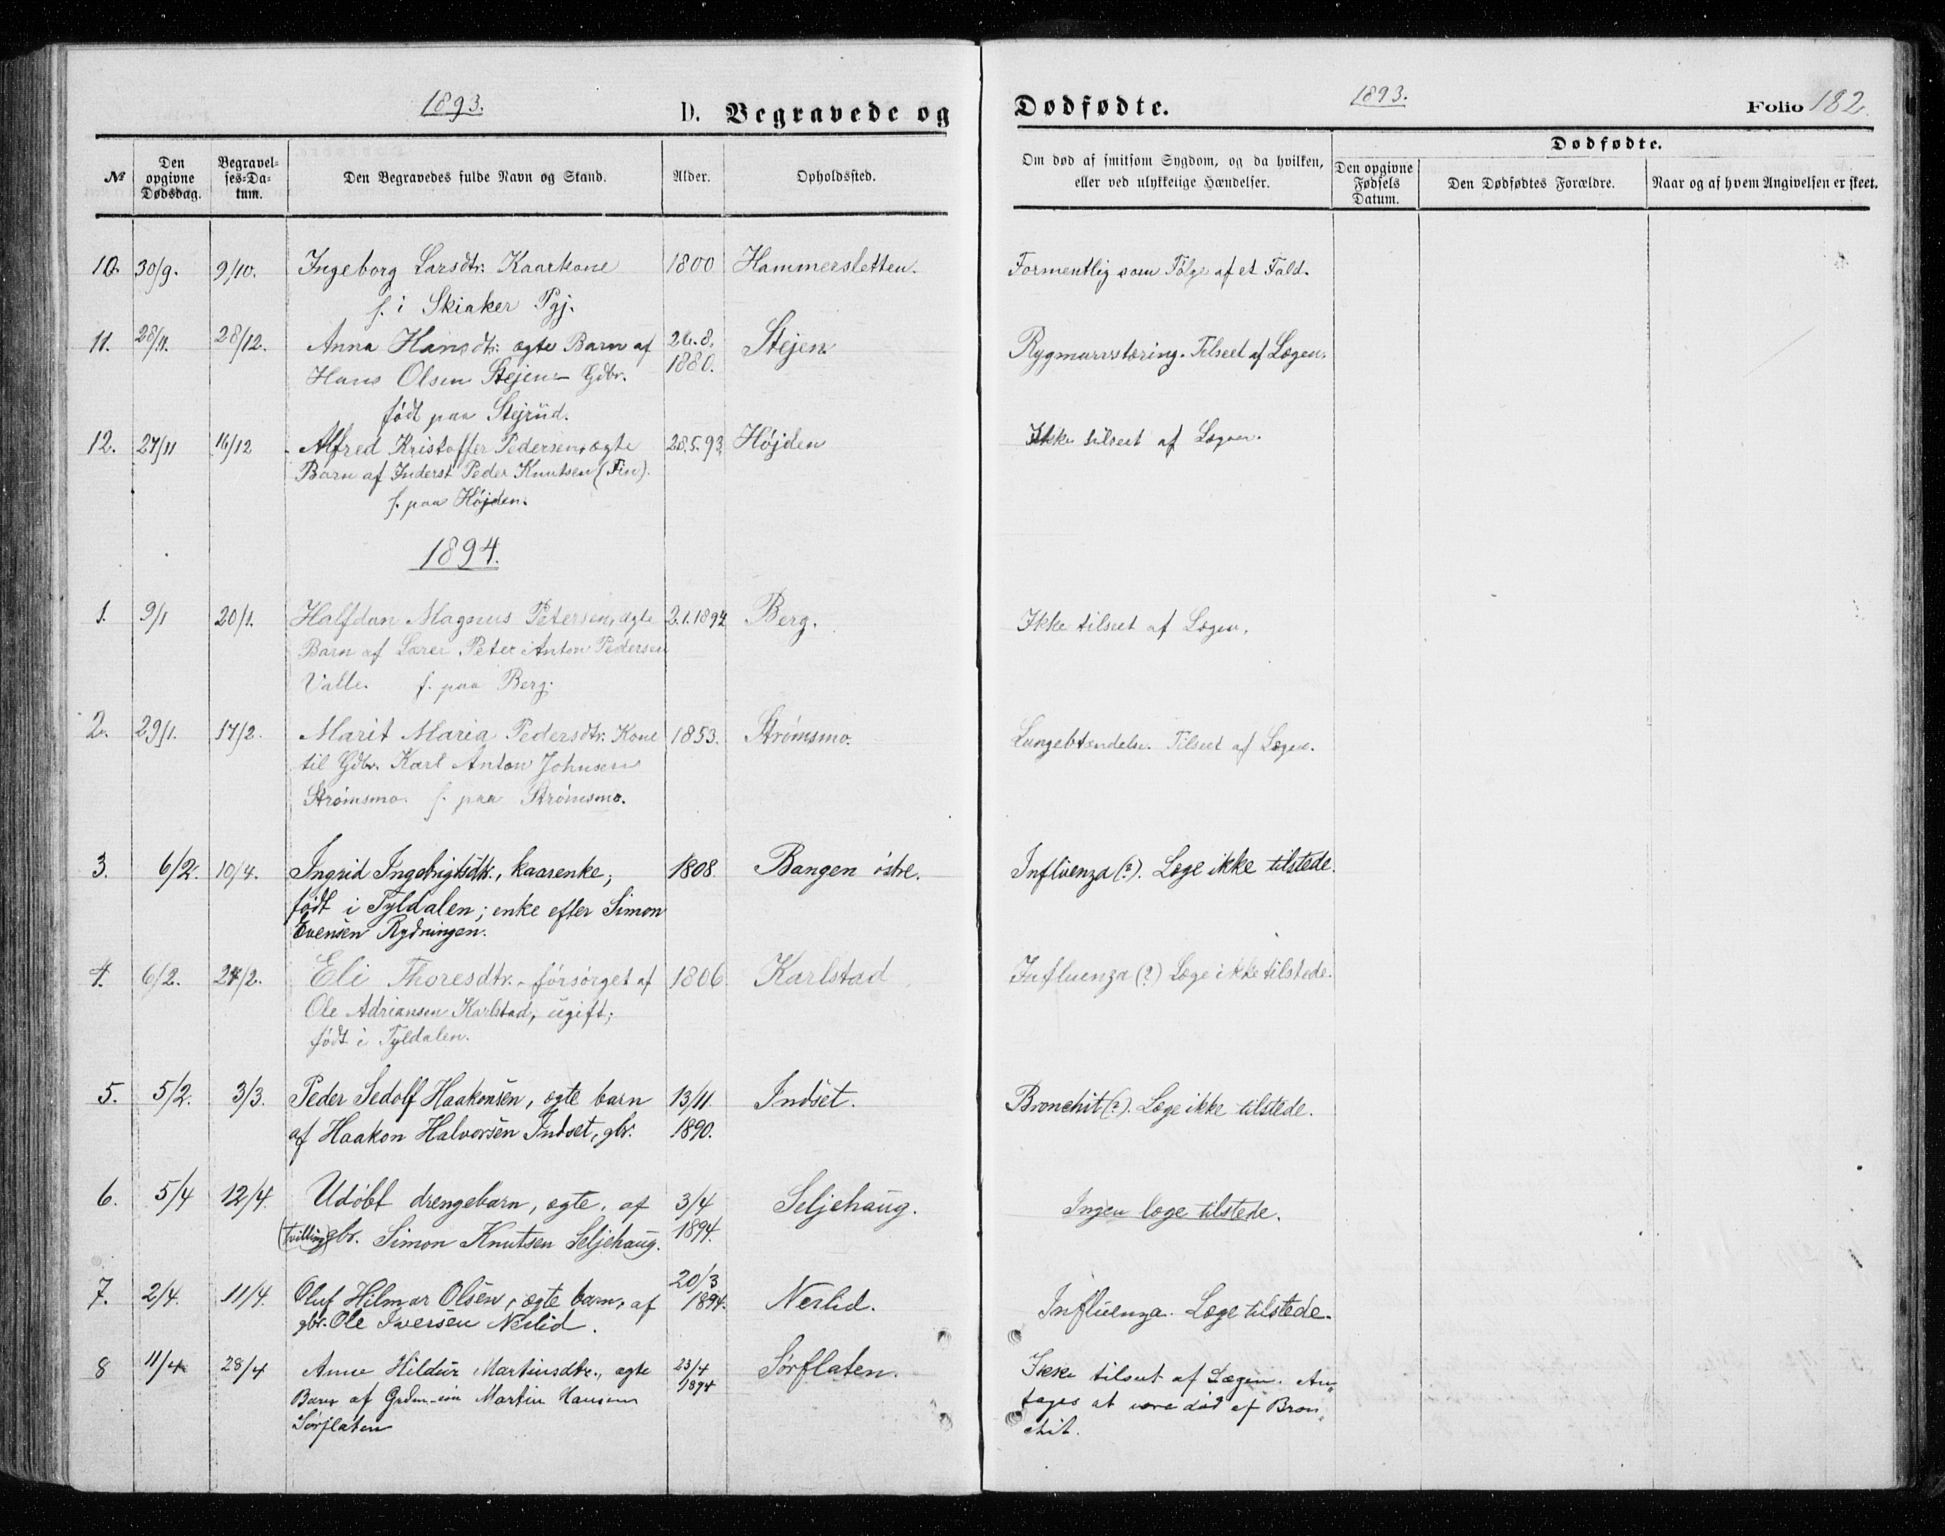 1893.
D. Begravede og
Dødfødte.
1893.
Folio 182.
№
Den opgivne Dødsdag.
Begravel-
ses-Da-
tum.
Den Begravedes fulde Navn og Stand.
Alder.
Opholdssted.
Om død af smitsom Sygdom, og da hvilken,
eller ved ulykkelige Hændelser.
Dødfødte.
Den opgivne
Fødsels
Datum.
Den Dødfødtes Forældre.
Naar og af hvem Angivelsen er skeet.
10. 30/9. 9/10. Ingeborg Larsdtr. Kaarkone 1800 Hammersletten. Formentlig som Følge af et Fald.
f. i Skiaker Pgj.
11. 28/11. 28/12. Anna Hansdtr. ægte Barn af 26.8. Stejen Rygmarvstæring. Tilseet af Lægen.
Hans Olsen Stejen Gdbr. 1880.
født paa Stejrud.
12. 27/11 16/12 Alfred Kristoffer Pedersen, ægte 28.5.93 Højden Ikke tilseet af Lægen.
Barn af Inderst Peder Knutsen (Fin).
f. paa Højden.
1894.
1. 9/1 20/1. Halfdan Magnus Petersen, ægte 2.1.1894 Berg. Ikke tilseet af Lægen.
Barn af Lærer Peter Anton Pedersen
Valle. f. paa Berg.
2. 29/1. 17/2. Marit Maria Pedersdtr. Kone 1853. Strømsmo. Lungebtændelse. Tilseet af Lægen.
til Gdbr. Karl Anton Johnsen
Strømsmo. f. paa Strømsmo.
3. 6/2. 10/4. Ingrid Ingebrigtsdtr., kaarenke; 1808. Bangen østre. Influenza (?). Læge ikke tilstede.
født i Tyldalen; enke efter Simon
Evensen Rydningen.
4. 6/2. 24/2. Eli Thoresdtr. - forsørget af 1806. Karlstad Influenza (?) Læge ikke tilstede.
Ole Adriansen Karlstad, ugift;
født i Tyldalen.
5. 5/2. 3/3. Peder Sedolf Haakonsen, ægte barn 13/11. Indset. Bronchit (?). Læge ikke tilstede.
af Haakon Halvorsen Indset, gbr. 1890.
6. 5/4 12/4. Udøbt drengebarn, ægte, af 3/4 Seljehaug. Ingen læge tilstede.
(tvilling) gbr. Simon Knutsen Seljehaug. 1894.
7. 2/4. 11/4. Oluf Hilmar Olsen, ægte barn, af 20/3 1894. Nerlid. Influenza. Læge tilstede.
gbr. Ole Iversen Nerlid.
8 11/4 28/4 Anne Hildur Martinsdtr., ægte 23/4 Sørflaten. Ikke tilseet af Lægen. An-
Barn af Martin Hansen 1894 tages at være død af Bron-
Sørflaten chit.